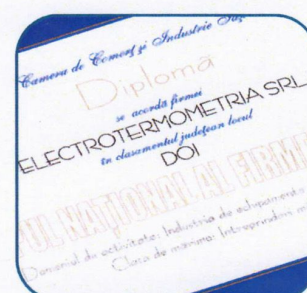 Camera de Comerţ şi Industrie
Diplomă
se acordă firmei
ELECTROTERMOMETRIA SRL
în clasamentul judeţean locul
DOI
UL NAŢIONAL AL FIRM
Domeniul de activitate: Industria de echipamente
Clasa de mărime: Întreprinderi